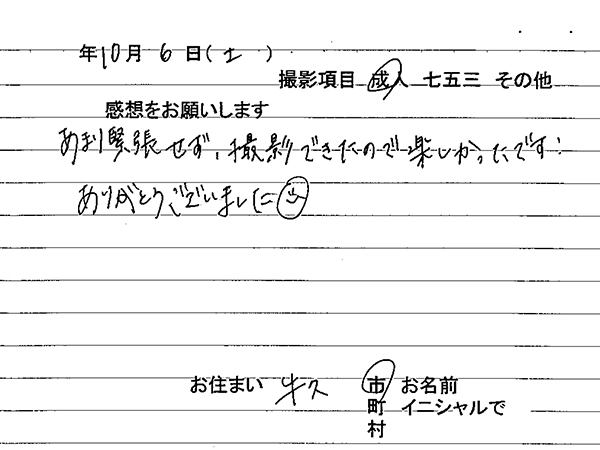 年10月 6 日(土 )
撮影項目 成人 七五三 その他
感想をお願いします
あまり緊張せず、撮影できたので楽しかったです!
ありがとうございました
お住まい 牛久 市 お名前
町 イニシャルで
村